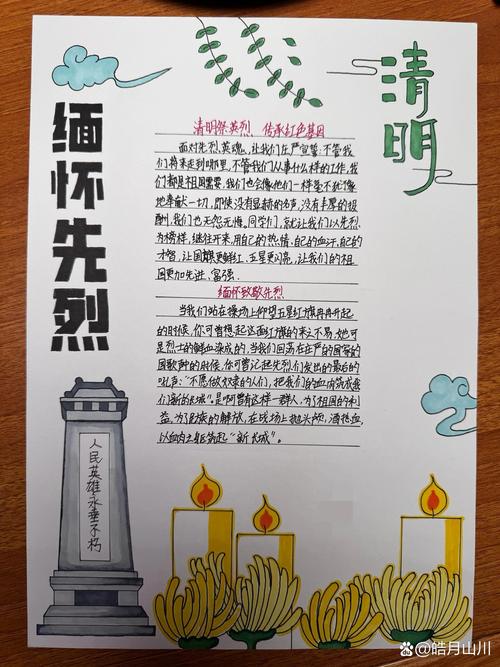 清明
缅怀先烈
清明祭英烈、传承红色基因
面对先烈英魂,让我们庄严宣誓:不管我
们将来走到哪里,不管我们从事什么样的工作,我
们都是祖国需要,我们也会像他们一样毫不犹豫
地奉献一切,即使没有显赫的名声,没有丰厚的报
酬,我们也无怨无悔。同学们,就让我们以先烈
为榜样,继往开来,用自己的热情,自己的血汗,自己的
才智,让国旗更鲜红,五星更闪亮,让我们的祖
国更加先进、富强.
缅怀致敬先烈
当我们站在操场上仰望五星红旗冉冉升起
的时候,你可曾想起这面红旗的来之不易,她可
是烈士的鲜血染成的,当我们回荡在庄严的国家的
国歌声的时候,你可曾记起先烈们发出的最后的
吼声:“不愿做奴隶的人们,把我们的血肉筑成我
们新的长城”。是啊曾有这样一群人,为了祖国的利
益,为了民族的解放,在战场上抛头颅,洒热血,
以血肉之躯筑起“新长城”。
人民英雄永垂不朽
@皓月山川